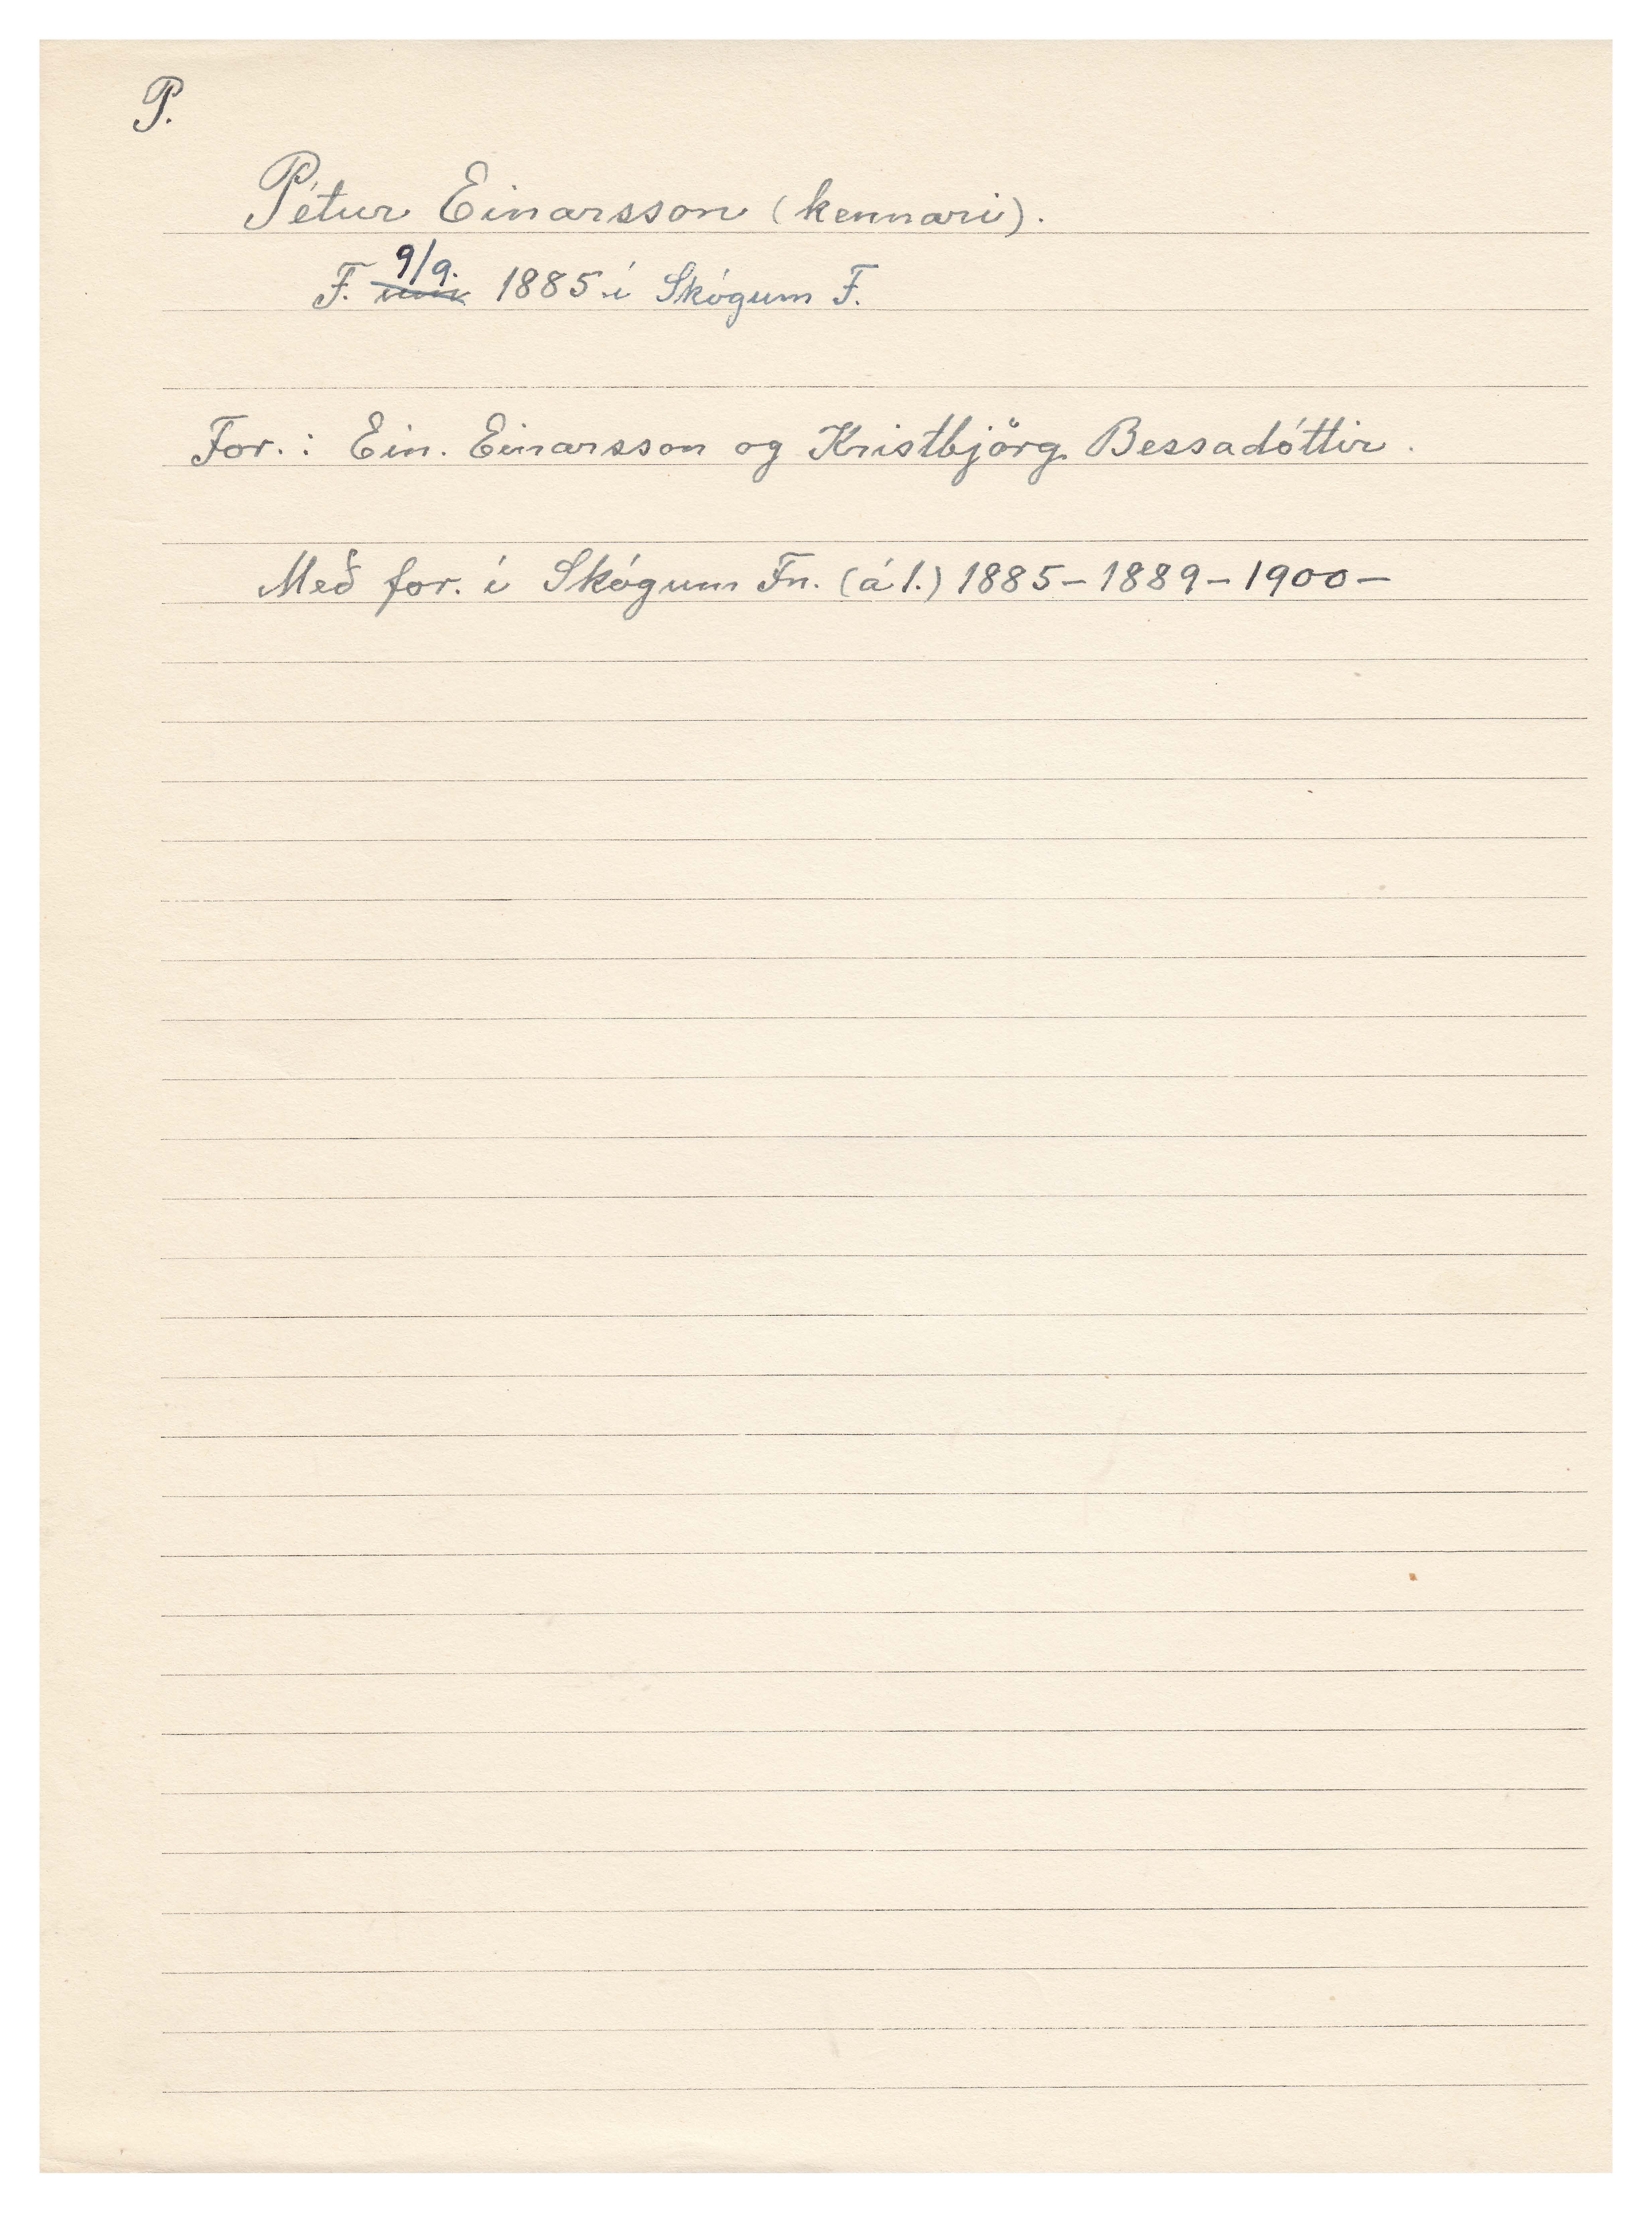 P.
Pétur Einarsson (kennari).
F. 9/9. 1885 í Skógum F.
For.: Ein. Einarsson og Kristbjörg Bessadóttir.
Með for. í Skógum Fn. (á l.) 1885 – 1889 – 1900 –